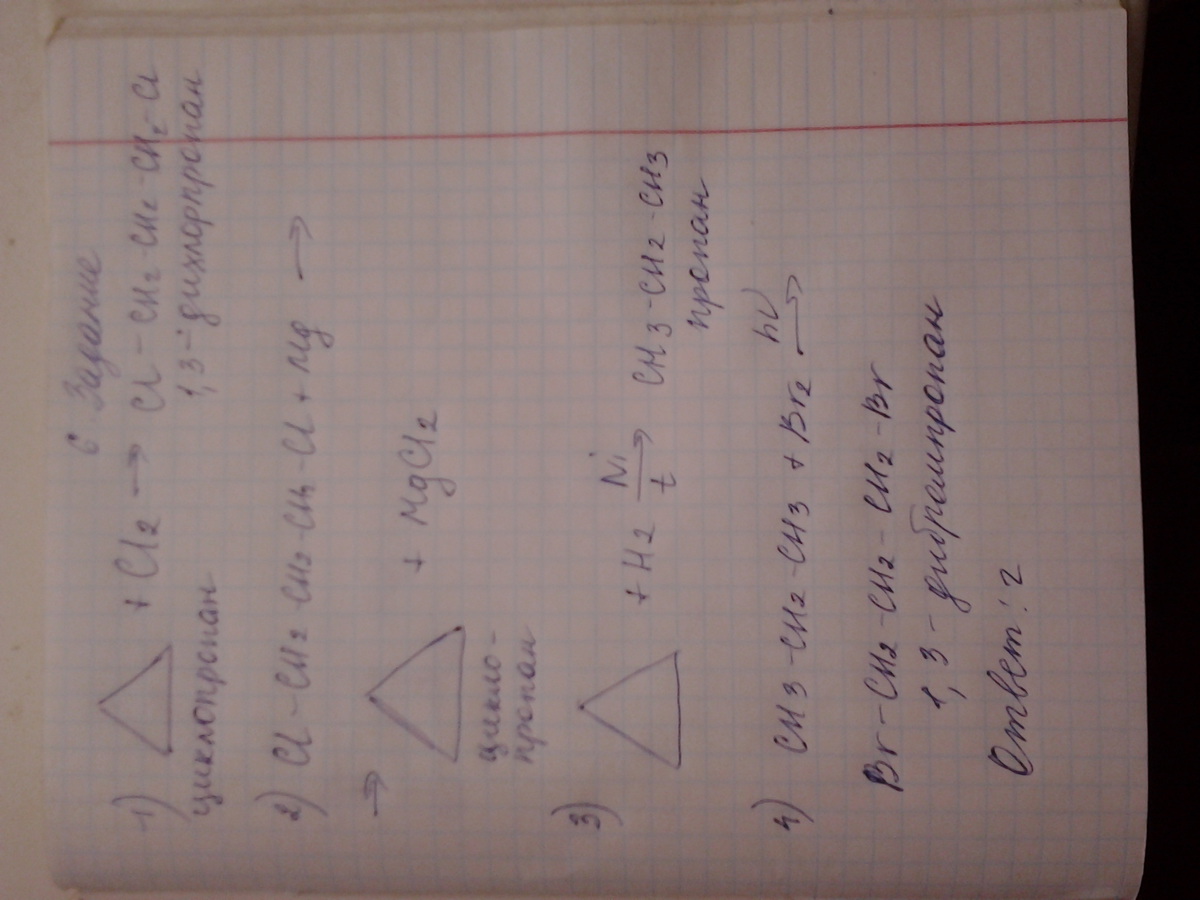 6 Задание
1) + Cl2 → Cl - CH2 - CH2 - CH2 - Cl
циклопропан 1,3 - дихлорпропан
2) Cl - CH2 - CH2 - CH2 - Cl + Mg →
→ + MgCl2
цикло-
пропан
3) + H2 Ni
t → CH3 - CH2 - CH3
пропан
4) CH3 - CH2 - CH3 + Br2 hν →
Br - CH2 - CH2 - CH2 - Br
1,3 - дибромпропан
Ответ: 2